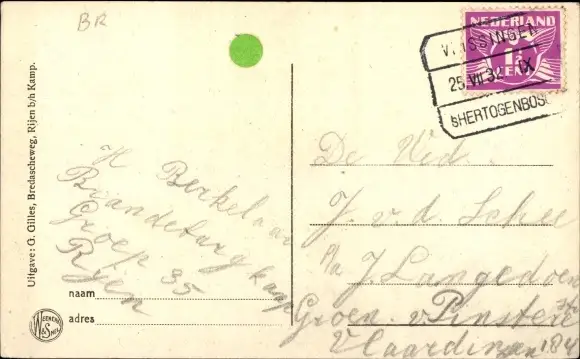 BR
NEDERLAND
1½
CENT
VLISSINGEN
25 VII 32 IX
SHERTOGENBOS
Uitgave: G. Gilles, Bredascheweg, Rijen b/h Kamp.
H Berkelaar
Brandeburg kamp
Groep 35
Rijen
naam
adres
WEENENK & SNEL
De Wed.
J. v. d. Schee
p/a J. Langedoen
Groen v. Prinster str
Vlaardingen 184